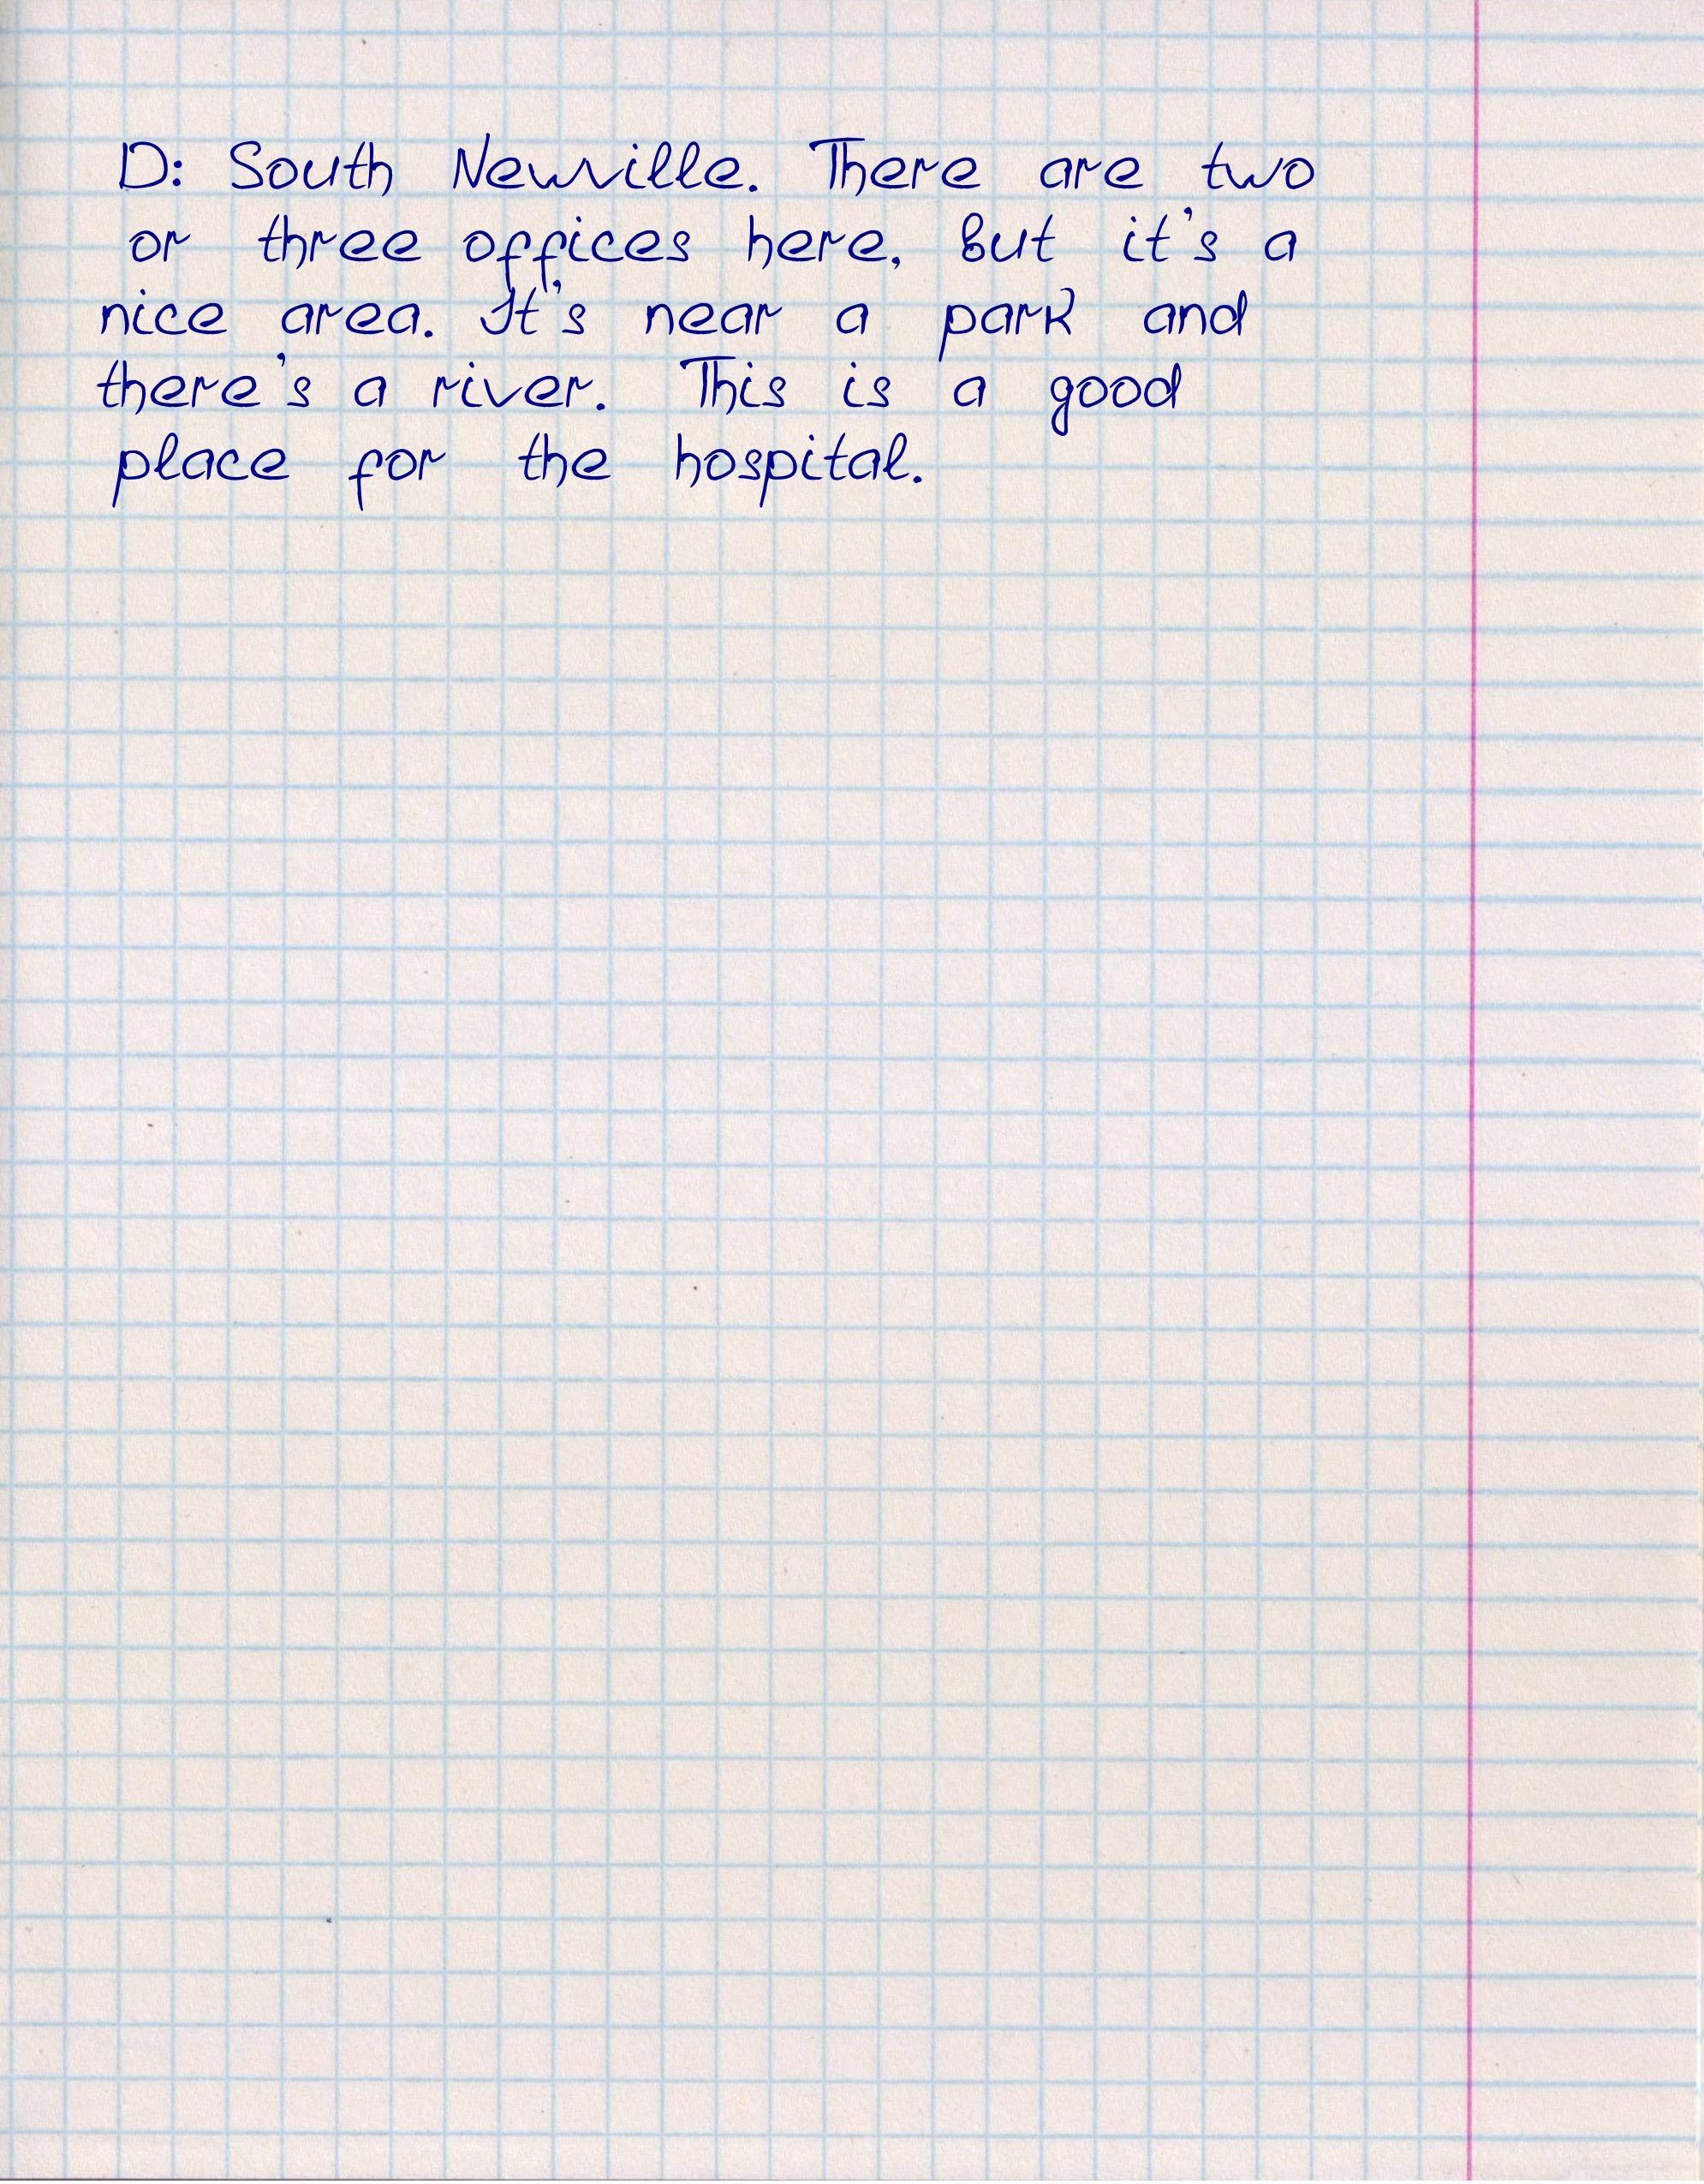 D: South Newville. There are two
or three offices here, but it's a
nice area. It's near a park and
there's a river. This is a good
place for the hospital.